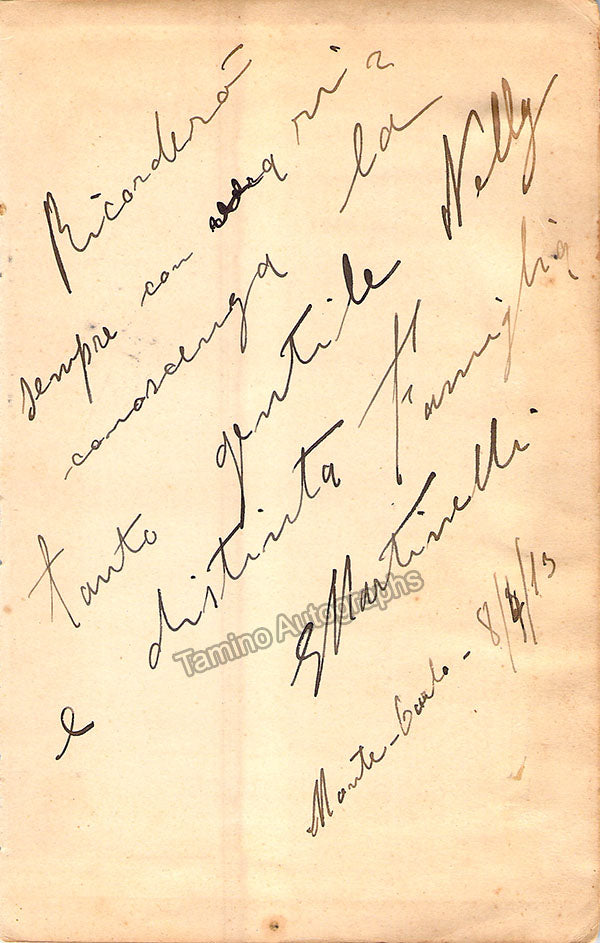 Ricorderò
sempre con ri =
conoscenza la
tanto gentile Nelly
e distinta Famiglia
GMartinelli
Monte-Carlo - 8/4/13
Tamino Autographs